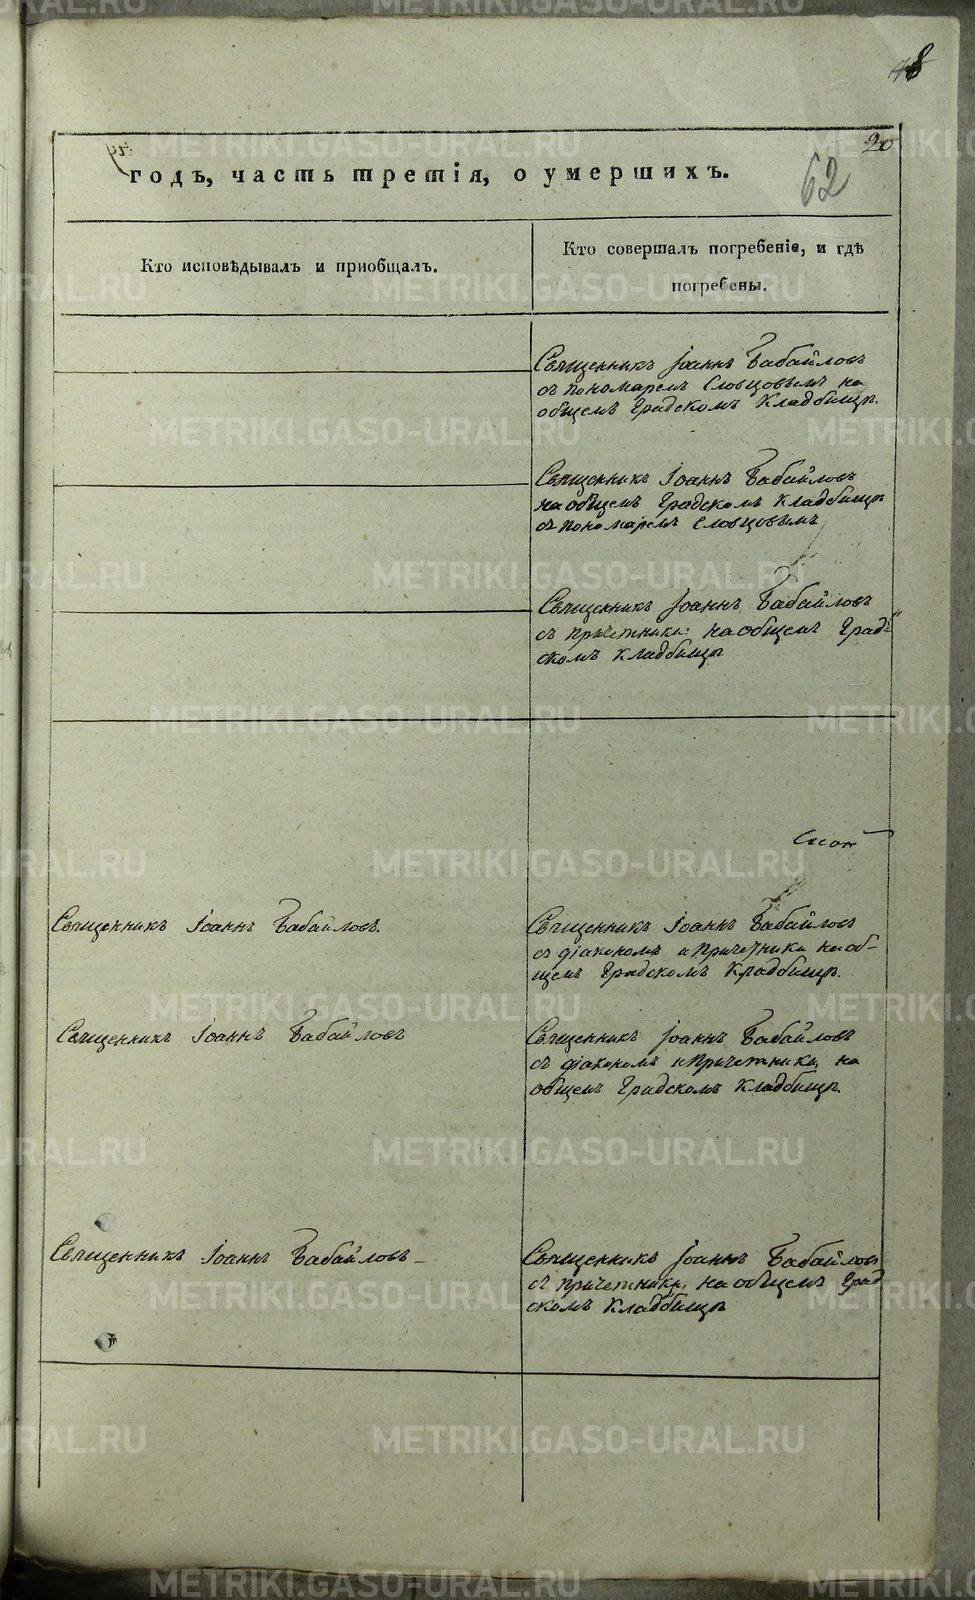 20
62
годъ, часть третія, о умершихъ.
Кто исповѣдывалъ и пріобщалъ.
Кто совершалъ погребеніе, и гдѣ
погребены.
Священникъ Іоаннъ Бабайловъ
съ пономаремъ Словцовымъ на
общемъ Градскомъ Кладбищѣ.
Священникъ Іоаннъ Бабайловъ
на общемъ Градскомъ Кладбищѣ
съ пономаремъ Словцовымъ
Священникъ Іоаннъ Бабайловъ
съ причетники на общемъ Град
скомъ Кладбищѣ
Священникъ Іоаннъ Бабайловъ.
Священникъ Іоаннъ Бабайловъ
съ діакономъ и причетники на об-
щемъ Градскомъ Кладбищѣ.
Священникъ Іоаннъ Бабайловъ
Священникъ Іоаннъ Бабайловъ
съ діакономъ и причетники на
общемъ Градскомъ Кладбищѣ.
Священникъ Іоаннъ Бабайловъ
Священникъ Іоаннъ Бабайловъ
съ причетники на общемъ Град
скомъ Кладбищѣ
METRIKI.GASO-URAL.RU